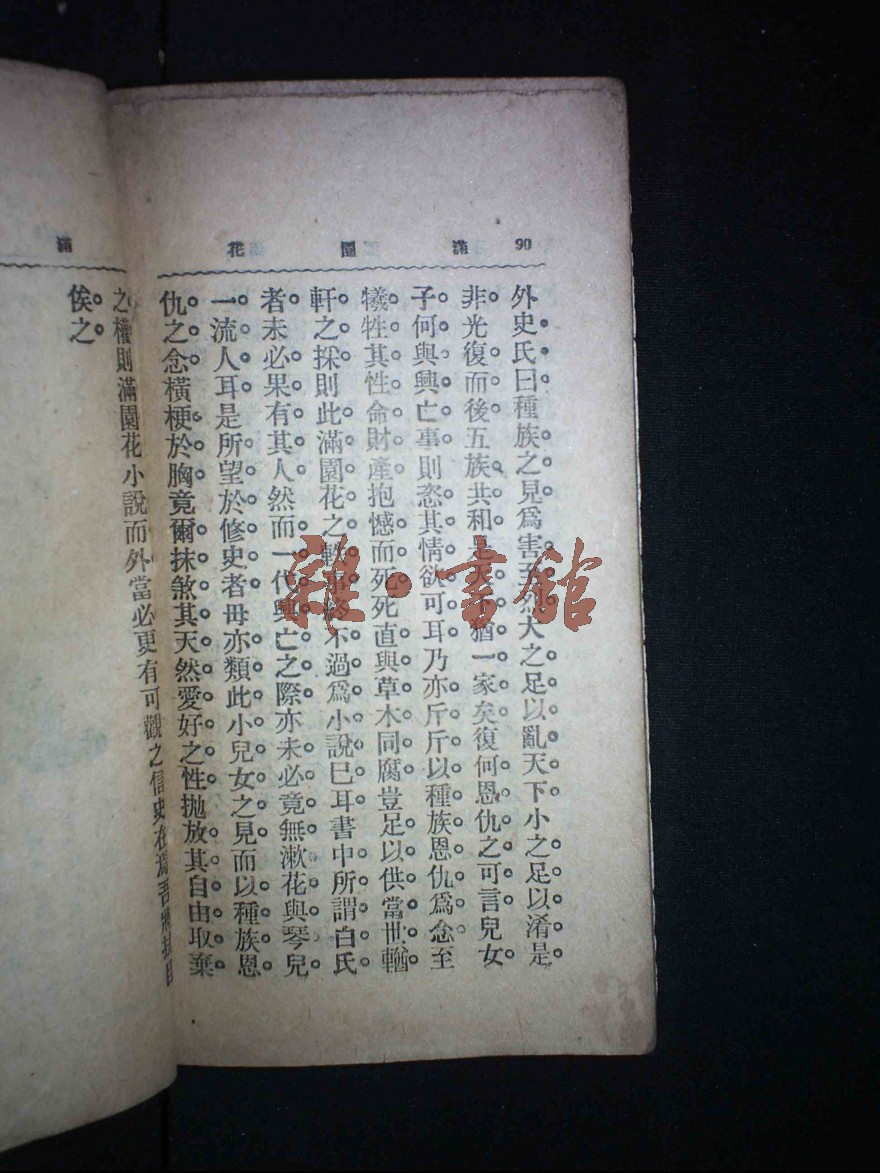 90
滿園花
外史氏曰種族之見爲害至烈大之足以亂天下小之足以淆是
非光復而後五族共和是天下猶一家矣復何恩仇之可言兒女
子何與興亡事則恣其情欲可耳乃亦斤斤以種族恩仇爲念至
犧牲其性命財產抱憾而死死直與草木同腐豈足以供當世輶
軒之採則此滿園花之軼事終不過爲小說巳耳書中所謂白氏
者未必果有其人然而一代興亡之際亦未必竟無漱花與琴兒
一流人耳是所望於修史者毋亦類此小兒女之見而以種族恩
仇之念橫梗於胸竟爾抹煞其天然愛好之性抛放其自由取棄
之權則滿園花小說而外當必更有可觀之信史在焉吾將拭目
俟之
滿
雜·書館